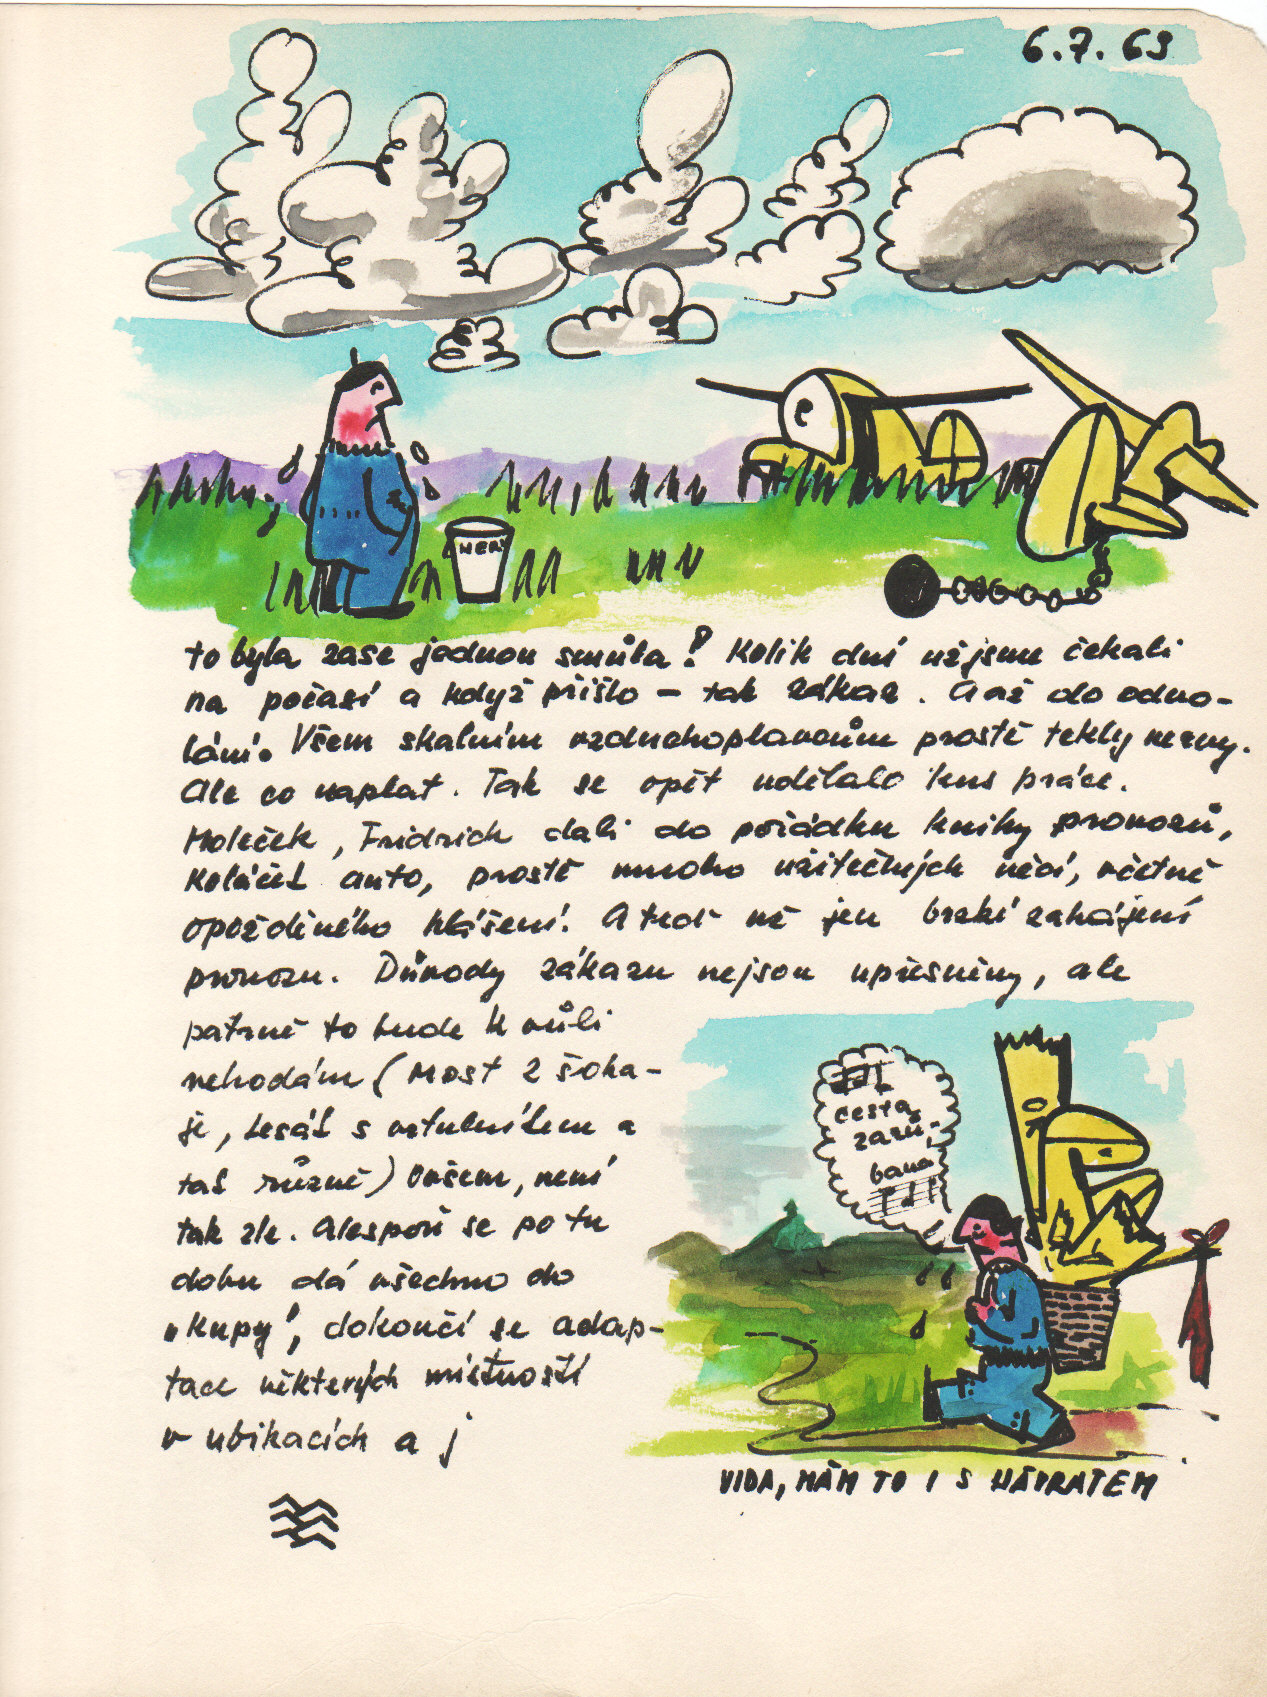 6.7.63
NERV
to byla zase jednou smůla! Kolik dní už jsme čekali
na počasí a když přišlo – tak zákaz. A až do odvo-
lání. Všem skalním vzduchoplavcům prostě tekly nervy.
Ale co naplat. Tak se opět udělalo kus práce.
Moleček, Fridrich dali do pořádku knihy provozu,
Koláček auto, prostě mnoho užitečných věcí, včetně
opožděného hlášení. A teď už jen brzké zahájení
provozu. Důvody zákazu nejsou upřesněny, ale
patrně to bude k vůli
nehodám (Most 2 šoha-
ji, s vrtulníkem a
tak různě) Ovšem, není
tak zle. Alespoň se po tu
dobu dá všechno do
„kupy", dokončí se adap-
tace některých místností
v ubikacích a j
cesta
zarů-
baná
VIDA, MÁM TO I S NÁVRATEM